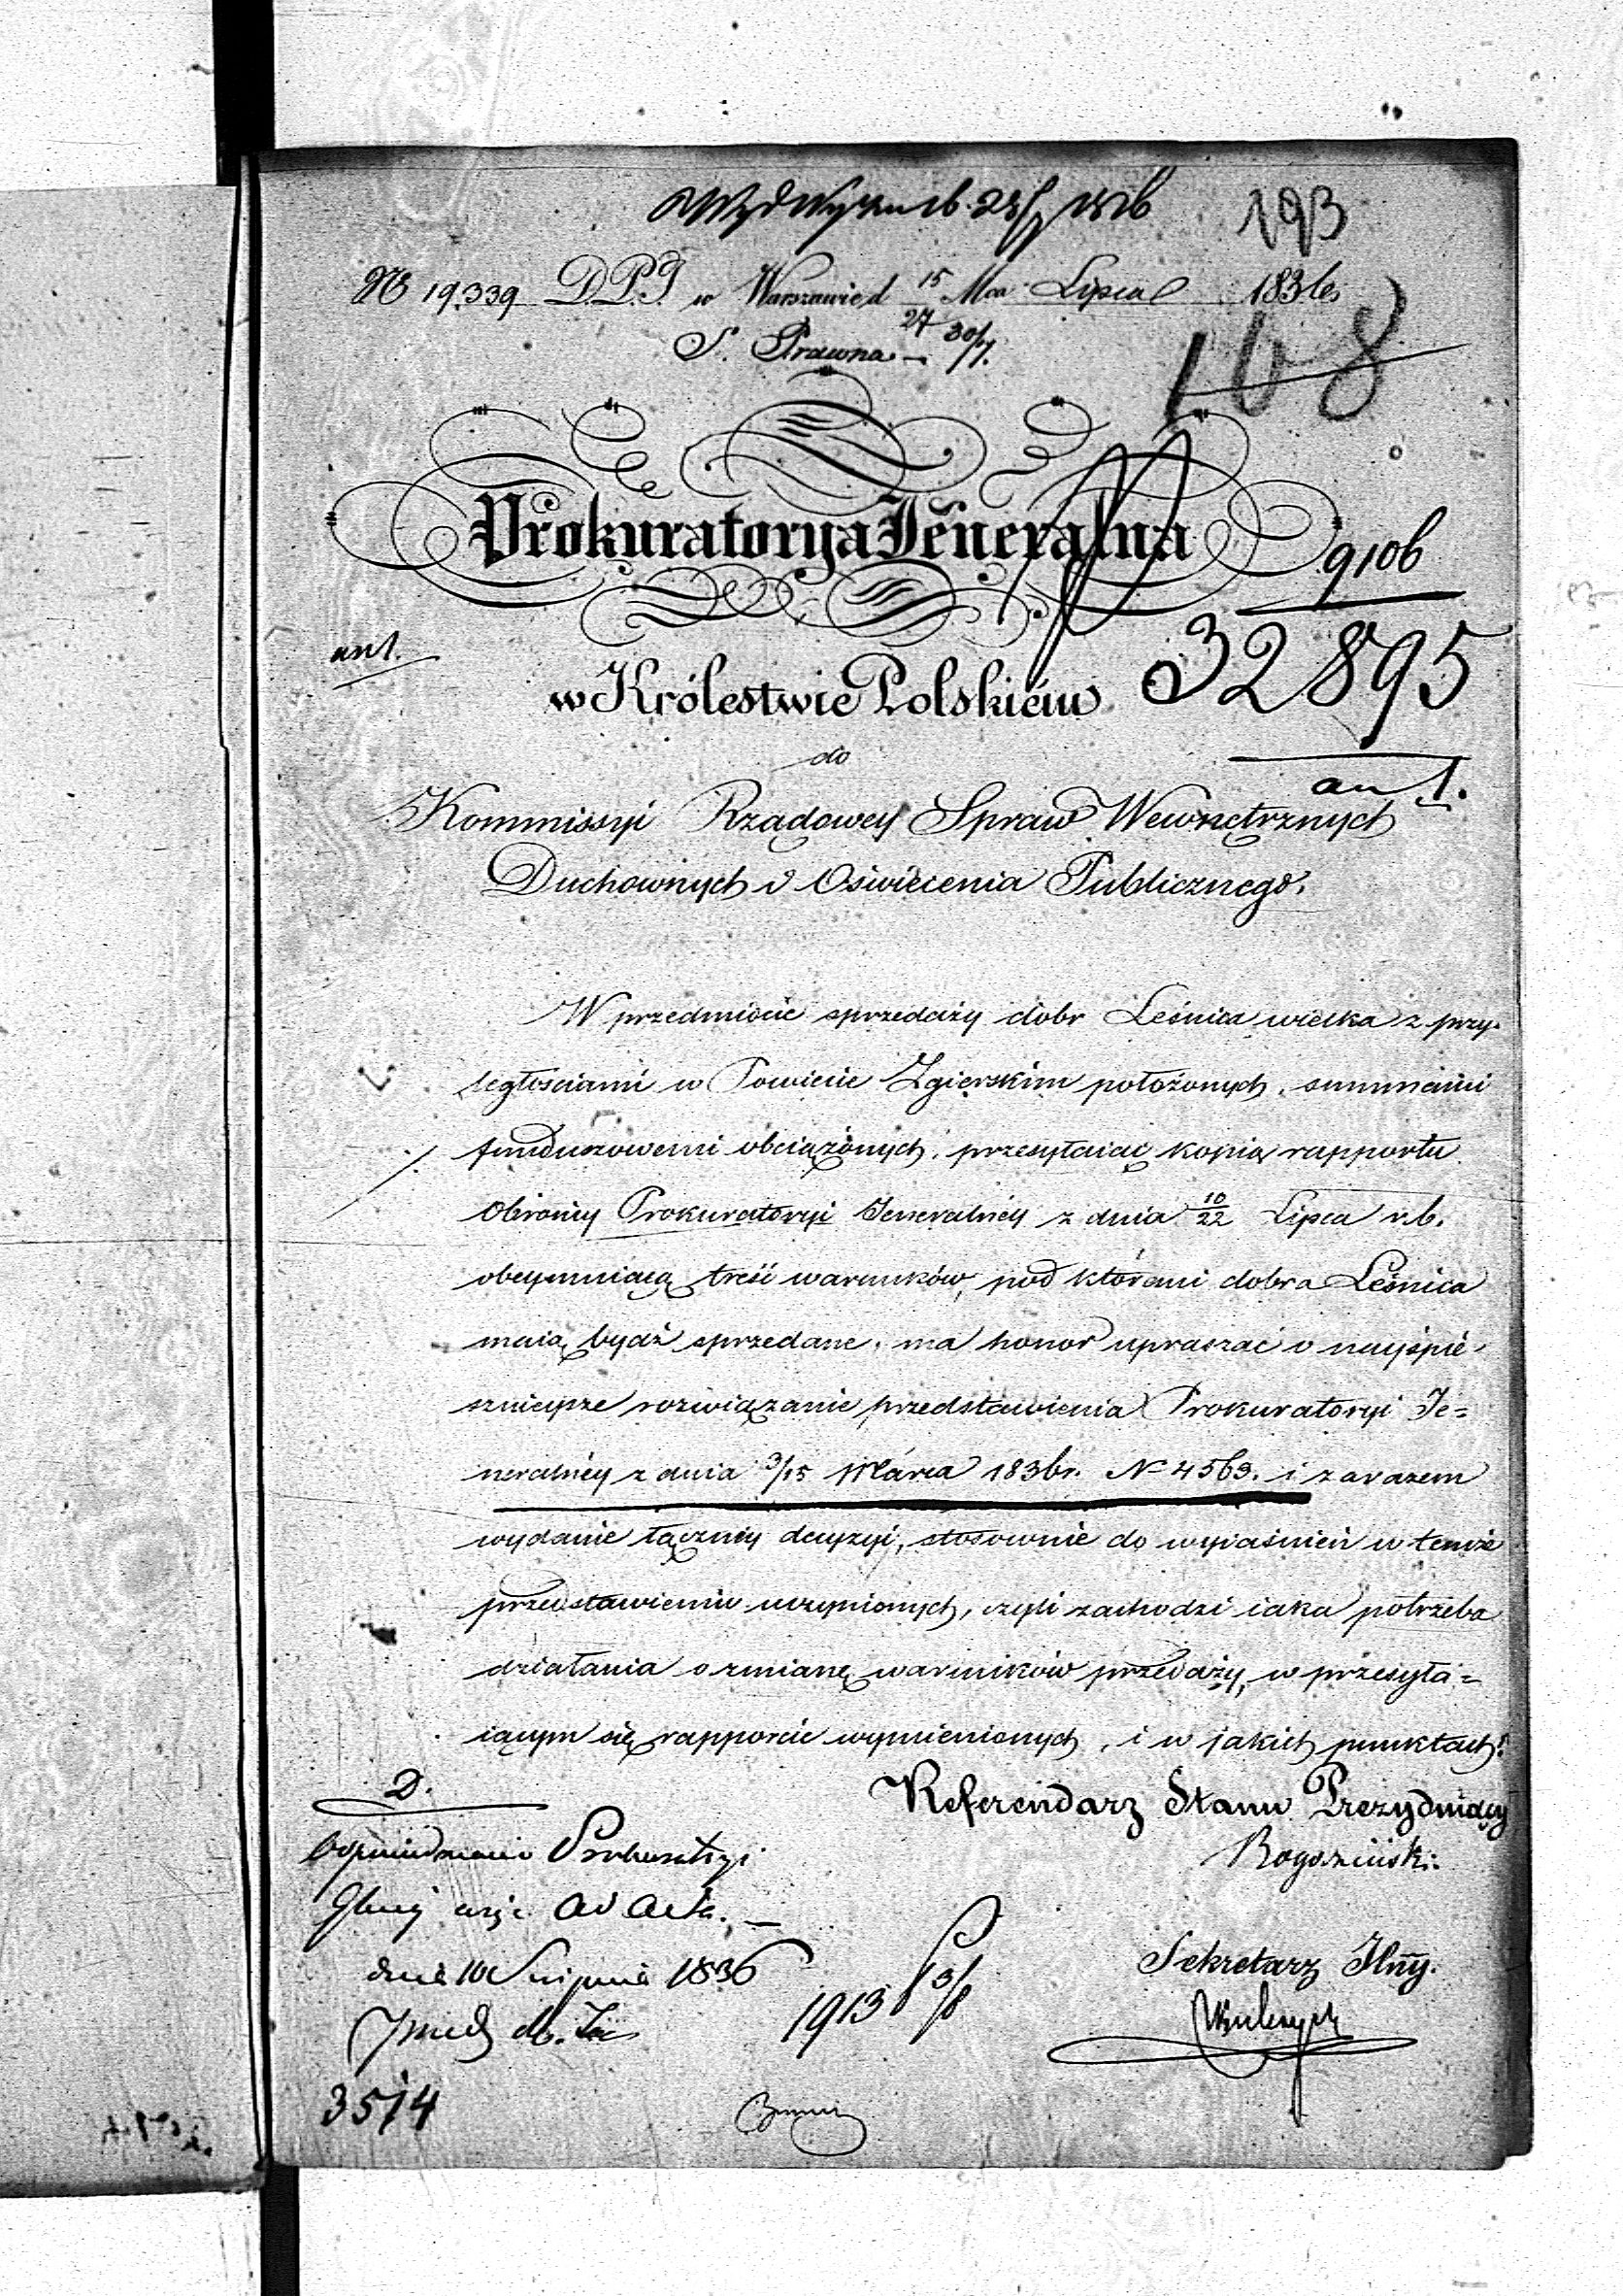 193
№ 19,339 D.P.J. w Warszawie d 15/27 Mca Lipca 1836
S. Prawna — 30/7.
168
Prokuratorya Jeneralna
9106
an 1.
w Królestwie Polskiém
32895
do
an 1.
Kommissyi Rządowey Spraw Wewnętrznych
Duchownych i Oświecenia Publicznego.
W przedmiocie sprzedaży dobr Leśnica wielka z przy-
ległościami w Powiecie Zgierskim położonych, summami
funduszowemi obciążonych, przesyłaiąc kopią rapportu
Obrońcy Prokuratoryi Jeneralnéy z dnia 10/22 Lipca r.b.
obeymuiącą treść warunków, pod któremi dobra Leśnica
maią bydź sprzedane, ma honor upraszać o nayśpie-
sznieysze rozwiązanie przedstawienia Prokuratoryi Je=
neralnéy z dnia 3/15 Marca 1836 r. N 4569. i zarazem
wydanie łączney decyzyi, stosownie do wyiaśnień w temże
przedstawieniu uczynionych, czyli zachodzi iaka potrzeba
działania o zmianę warunków przedaży, w przesyła=
iącym się rapporcie wymienionych, i w jakich punktach?
D.
Referendarz Stanu Prezyduiący
Rogoziński
ad acta. —
dnia 10 Sierpnia 1836
Sekretarz Jlny.
1913
3514